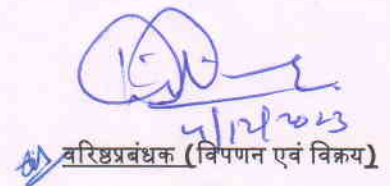 4/12/2023
वरिष्ठप्रबंधक (विपणन एवं विक्रय)